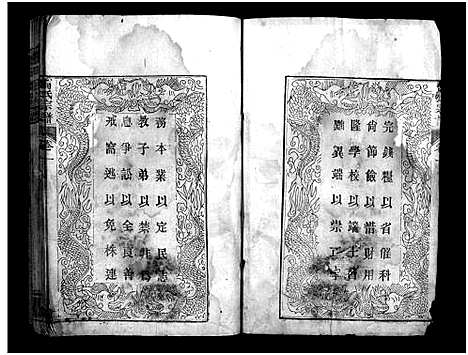 完錢糧以省催科
尚節儉以惜財用
隆學校以端士習
黜異端以崇正學
務本業以定民志
教子弟以禁非為
息爭訟以全良善
戒窩逃以免株連
氏宗譜